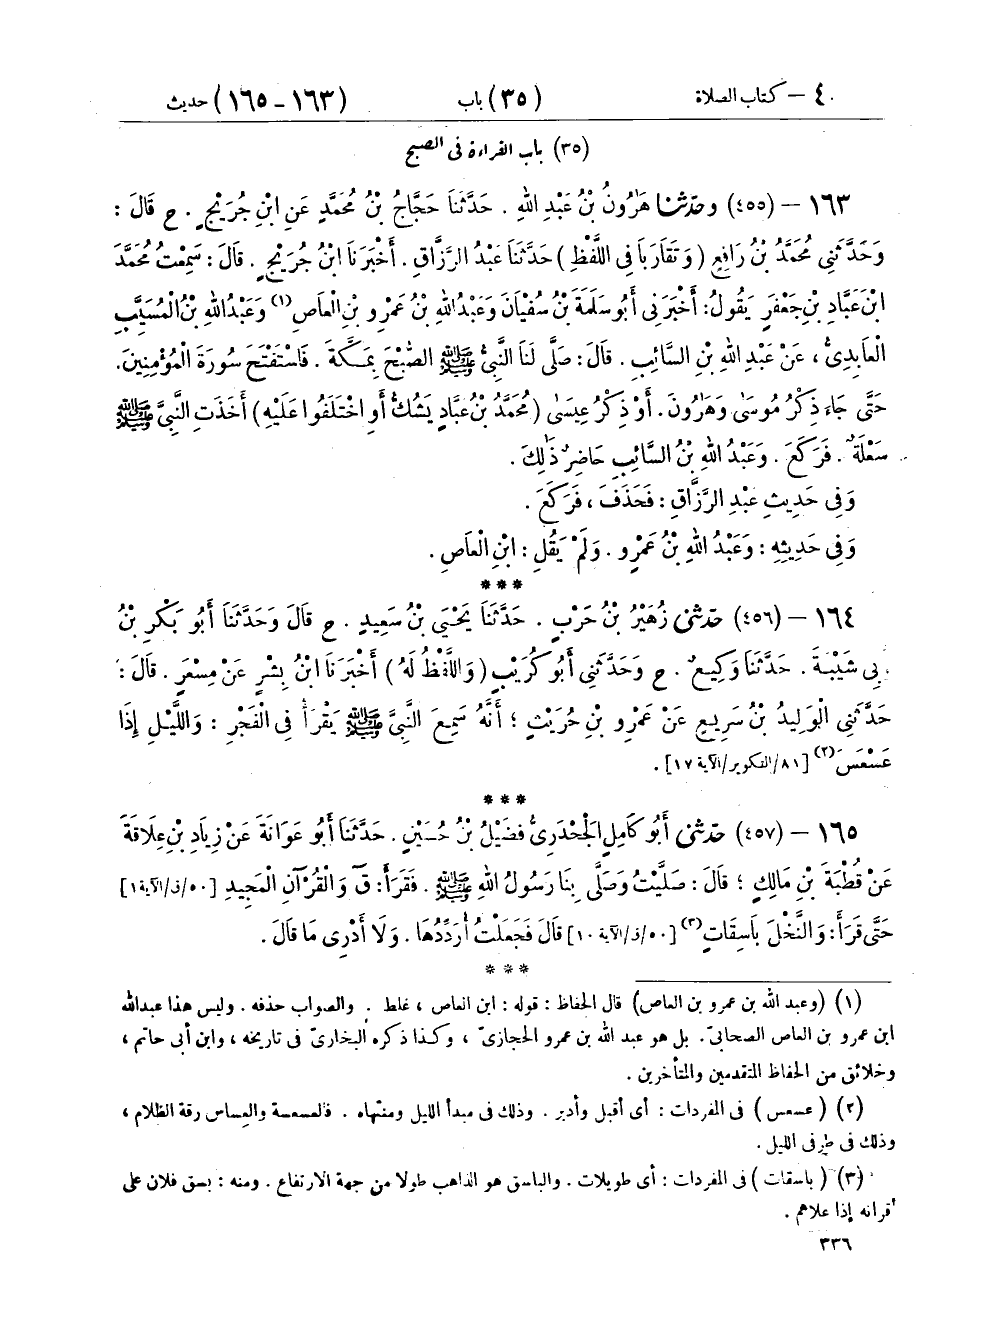 ٤ – كتاب الصلاة (٣٥) باب (١٦٣-١٦٥) حديث
(٣٥) باب القراءة فى الصبح
١٦٣ – (٤٥٥) وحدّثنا هَٰرُونُ بْنُ عَبْدِ اللهِ . حَدَّثَنَا حَجَّاجُ بْنُ مُحَمَّدٍ عَنِ ابْنِ جُرَيْجٍ . ح قَالَ :
وَحَدَّثَنِى مُحَمَّدُ بْنُ رَافِعٍ ( وَتَقَارَبَا فِى اللَّفْظِ ) حَدَّثَنَا عَبْدُ الرَّزَّاقِ . أَخْبَرَنَا ابْنُ جُرَيْجٍ . قَالَ : سَمِعْتُ مُحَمَّدَ
ابْنَ عَبَّادِ بْنِ جَعْفَرٍ يَقُولُ : أَخْبَرَنِى أَبُو سَلَمَةَ بْنُ سُفْيَانَ وَعَبْدُ اللهِ بْنُ عَمْرِو بْنِ الْعَاصِ (١) وَعَبْدُ اللهِ بْنُ الْمُسَيَّبِ
الْعَابِدِىُّ ، عَنْ عَبْدِ اللهِ بْنِ السَّائِبِ . قَالَ : صَلَّى لَنَا النَّبِىُّ ﷺ الصُّبْحَ بِمَكَّةَ . فَاسْتَفْتَحَ سُورَةَ الْمُؤْمِنِينَ .
حَتَّى جَاءَ ذِكْرُ مُوسَىٰ وَهَٰرُونَ . أَوْ ذِكْرُ عِيسَىٰ ( مُحَمَّدُ بْنُ عَبَّادٍ يَشُكُّ أَوِ اخْتَلَفُوا عَلَيْهِ ) أَخَذَتِ النَّبِىَّ ﷺ
سَعْلَةٌ . فَرَكَعَ . وَعَبْدُ اللهِ بْنُ السَّائِبِ حَاضِرٌ ذَٰلِكَ .
وَفِى حَدِيثِ عَبْدِ الرَّزَّاقِ : فَحَذَفَ ، فَرَكَعَ .
وَفِى حَدِيثِهِ : وَعَبْدُ اللهِ بْنُ عَمْرٍو . وَلَمْ يَقُلِ : ابْنِ الْعَاصِ .
***
١٦٤ – (٤٥٦) حدّثنى زُهَيْرُ بْنُ حَرْبٍ . حَدَّثَنَا يَحْيَى بْنُ سَعِيدٍ . ح قَالَ وَحَدَّثَنَا أَبُو بَكْرِ بْنُ
بِى شَيْبَةَ . حَدَّثَنَا وَكِيعٌ . ح وَحَدَّثَنِى أَبُو كُرَيْبٍ ( وَاللَّفْظُ لَهُ ) أَخْبَرَنَا ابْنُ بِشْرٍ عَنْ مِسْعَرٍ . قَالَ :
حَدَّثَنِى الْوَلِيدُ بْنُ سَرِيعٍ عَنْ عَمْرِو بْنِ حُرَيْثٍ ؛ أَنَّهُ سَمِعَ النَّبِىَّ ﷺ يَقْرَأُ فِى الْفَجْرِ : وَاللَّيْلِ إِذَا
عَسْعَسَ (٢) [٨١/التكوير/الآية ١٧] .
***
١٦٥ – (٤٥٧) حدّثنى أَبُو كَامِلٍ الْجَحْدَرِىُّ فُضَيْلُ بْنُ حُسَيْنٍ . حَدَّثَنَا أَبُو عَوَانَةَ عَنْ زِيَادِ بْنِ عِلَاقَةَ
عَنْ قُطْبَةَ بْنِ مَالِكٍ ؛ قَالَ : صَلَّيْتُ وَصَلَّى بِنَا رَسُولُ اللهِ ﷺ . فَقَرَأَ : قٓ وَالْقُرْآنِ الْمَجِيدِ [٥٠/ق/الآية ١]
حَتَّى قَرَأَ : وَالنَّخْلَ بَاسِقَاتٍ (٣) [٥٠/ق/الآية ١٠] قَالَ فَجَعَلْتُ أُرَدِّدُهَا . وَلَا أَدْرِى مَا قَالَ .
***
(١) (وعبد الله بن عمرو بن العاص) قال الحفاظ : قوله : ابن العاص ، غلط . والصواب حذفه . وليس هذا عبدالله
ابن عمرو بن العاص الصحابىّ . بل هو عبد الله بن عمرو الحجازىّ ، وكذا ذكره البخارىّ فى تاريخه ، وابن أبى حاتم ،
وخلائق من الحفاظ المتقدمين والمتأخرين .
(٢) ( عسعس ) فى المفردات : أى أقبل وأدبر . وذلك فى مبدأ الليل ومنتهاه . فالعسعسة والعساس رقة الظلام ،
وذلك فى طرفى الليل .
(٣) ( باسقات ) فى المفردات : أى طويلات . والباسق هو الذاهب طولا من جهة الارتفاع . ومنه : بسق فلان على
أقرانه إذا علاهم .
٣٣٦